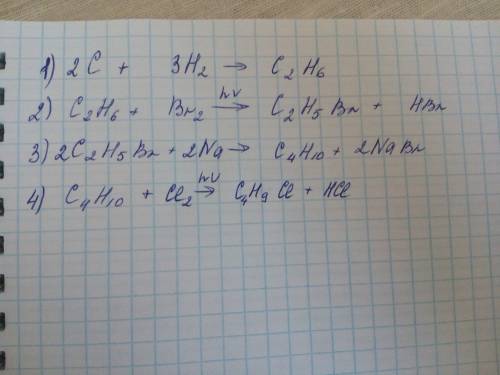 1) 2C + 3H₂ → C₂H₆
2) C₂H₆ + Br₂ hν→ C₂H₅Br + HBr
3) 2C₂H₅Br + 2Na → C₄H₁₀ + 2NaBr
4) C₄H₁₀ + Cl₂ hν→ C₄H₉Cl + HCl